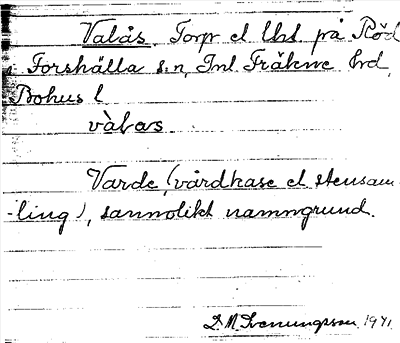 Valås. Torp el lht på Röd
i Forshälla s:n, Inl Fräkne hrd,
Bohus l
vàlas
Varde (vårdkase el stensam-
-ling), sannolikt namngrund.
D. M. Svenungsson 1941